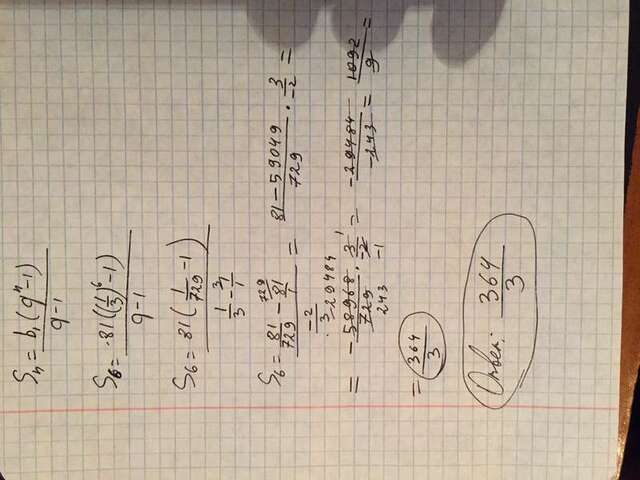 Sn = b₁(qⁿ-1) / q-1
S₆ = 81((1/3)⁶-1) / q-1
S₆ = 81(1/729 - 1) / 1/3 - 1/1
S₆ = 81/729 - 81/1 / -2/3 = 81-59049/729 · 3/-2 =
= -58968/729 · 3/-2 = -29484/-243 = 1092/9 =
= 364/3
Ответ: 364/3